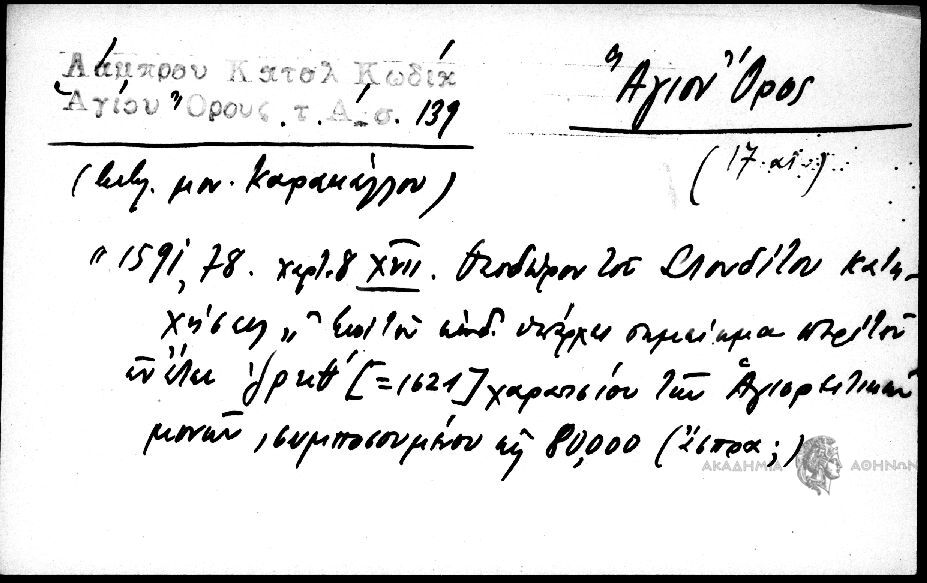 Λάμπρου Κατάλ Κωδίκ
Ἁγίου Ὄρους. τ. Α΄. σ. 139
Ἅγιον Ὄρος
(17 αἰ.)
(Βιβλ. μον. Καρακάλλου)
"1591, 78. χαρτ. 8 XVII. Θεοδώρου τοῦ Στουδίτου κατη-
χήσεις" ὑπάρχει σημείωμα περὶ τοῦ
ἐν ἔτει ͵ζρκθ΄ [=1621] χαρατσίου τῶν Ἁγιορειτικῶν
μονῶν, συμποσουμένου εἰς 80,000 (ἄσπρα;)
ΑΚΑΔΗΜΙΑ ΑΘΗΝΩΝ